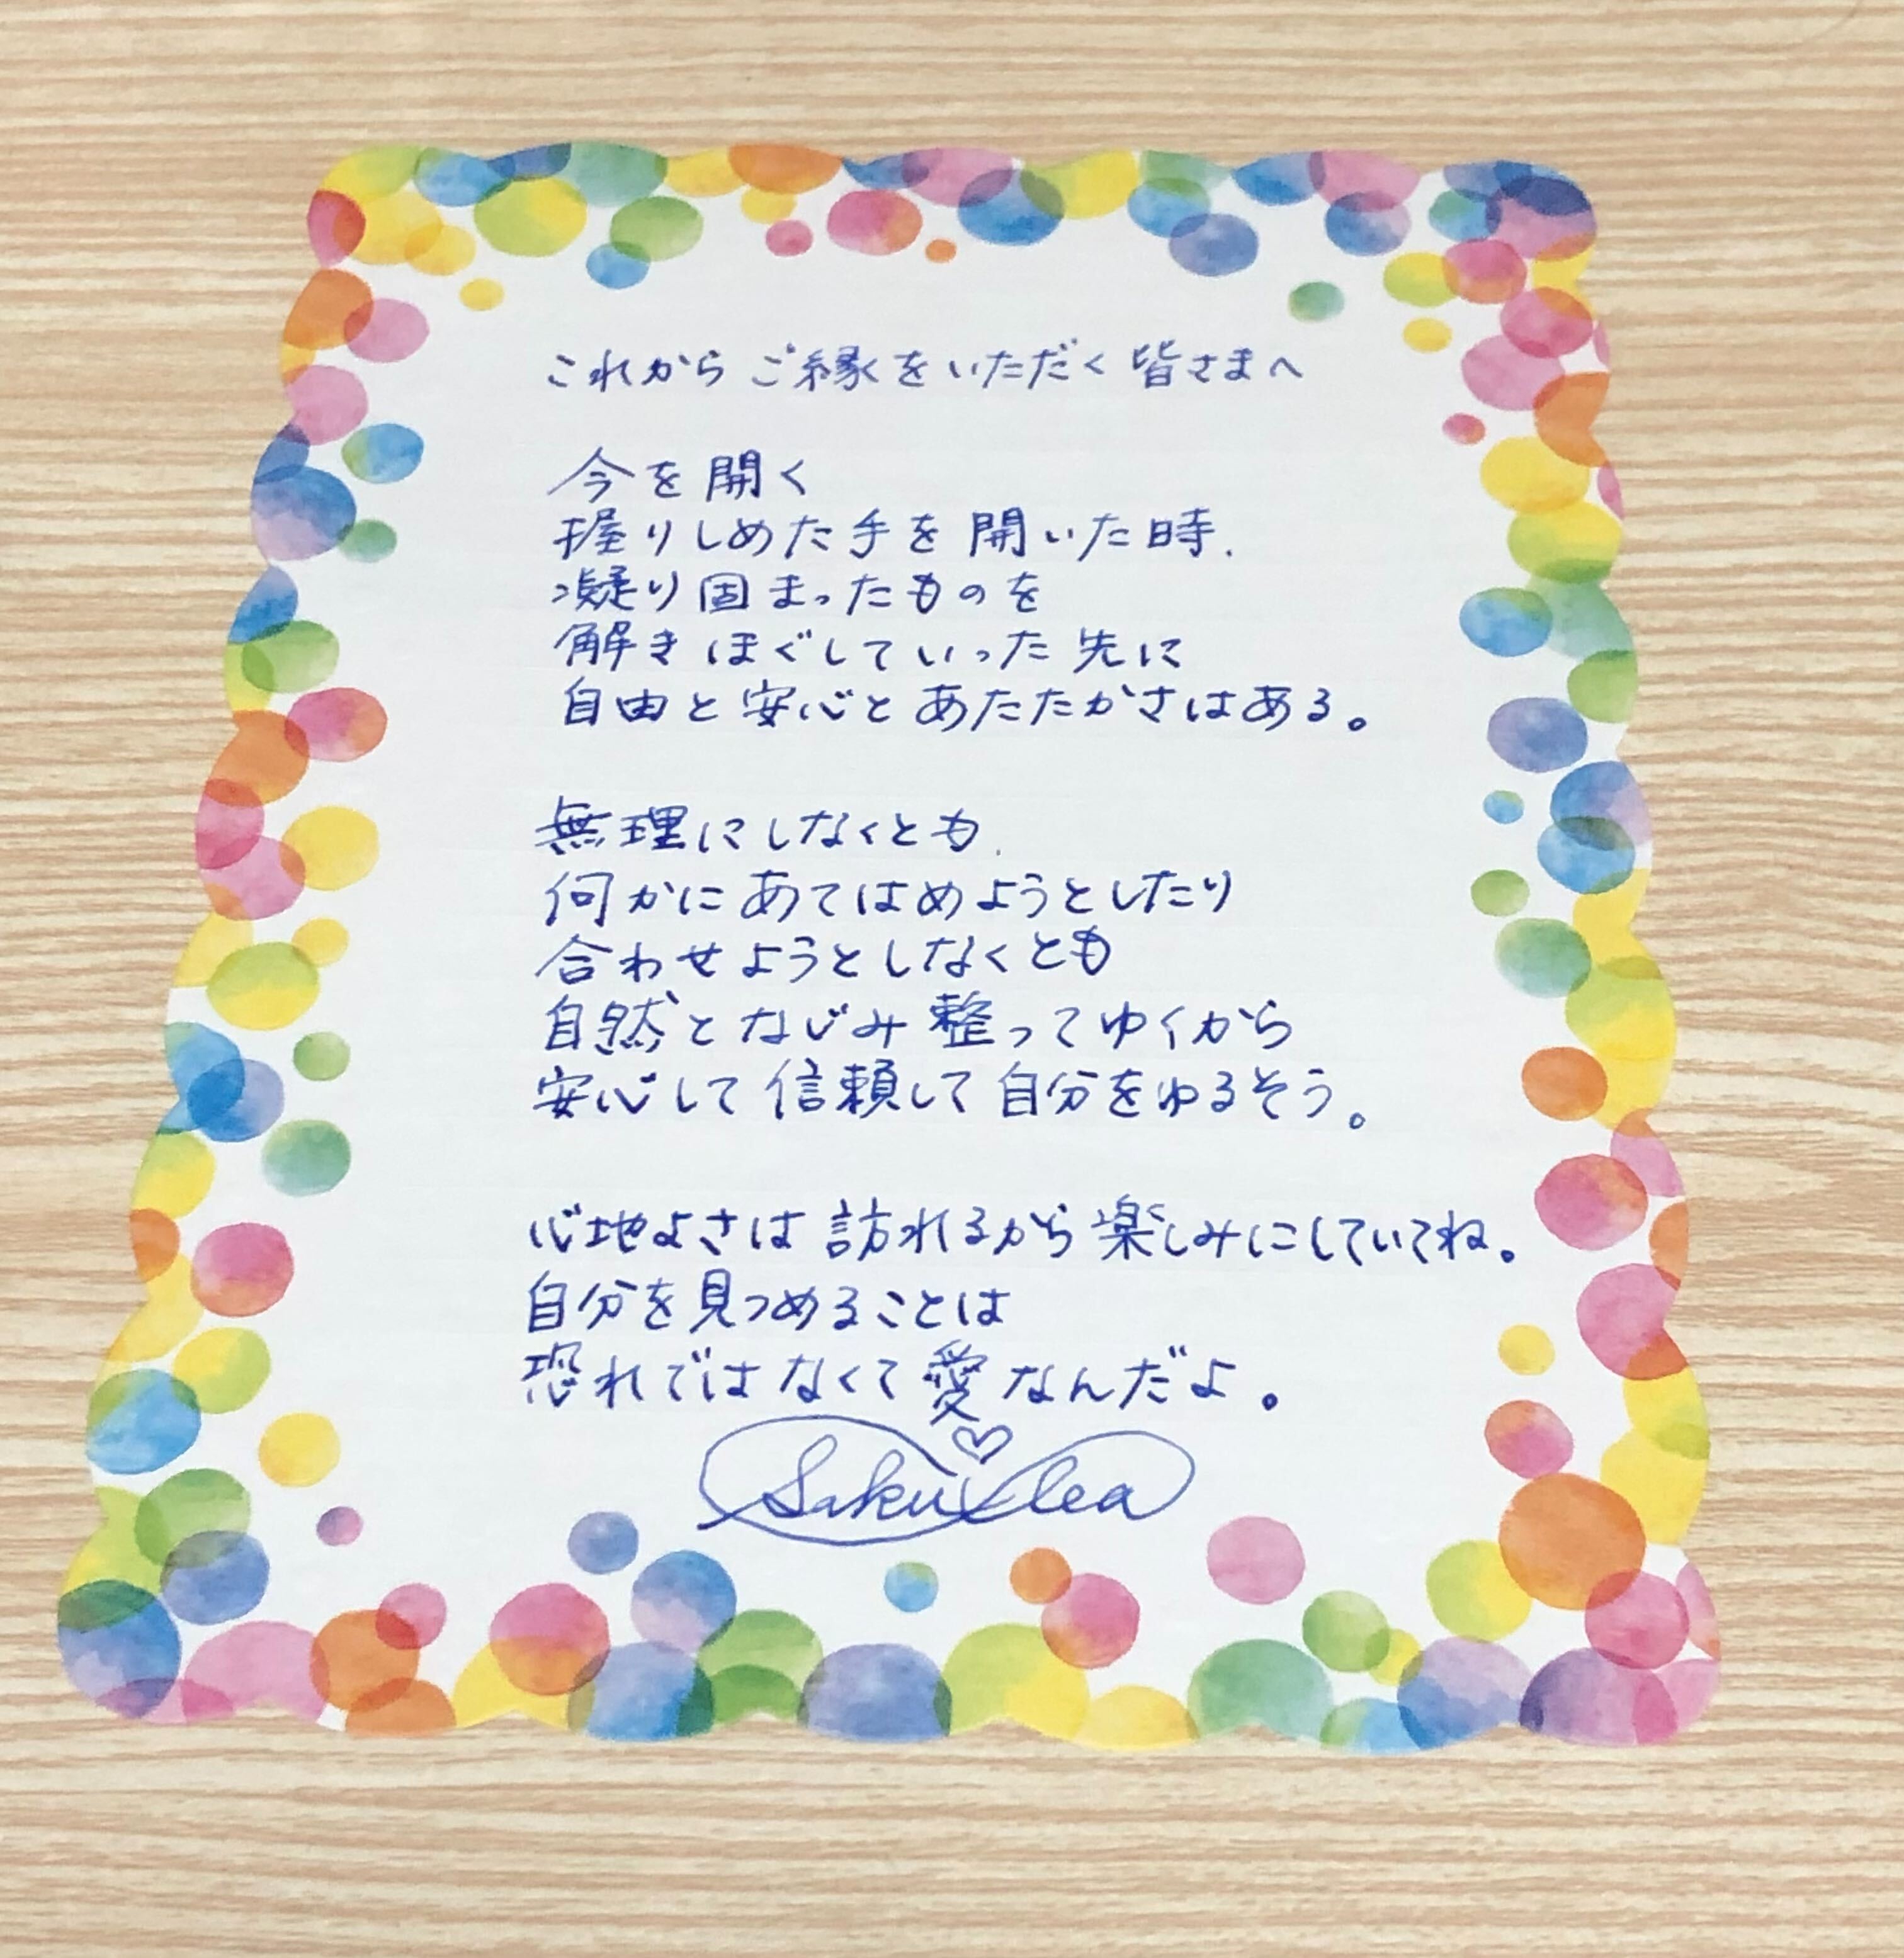 これから ご縁をいただく 皆さまへ
今を開く
握りしめた手を 開いた時、
凝り固まったものを
解きほぐしていった 先に
自由と安心と あたたかさはある。
無理にしなくとも、
何かに あてはめようとしたり
合わせようとしなくとも
自然と なじみ 整って ゆくから
安心して 信頼して 自分をゆるそう。
心地よさは 訪れるから 楽しみにしていてね。
自分を見つめることは
恐れではなくて 愛なんだよ。
Saku